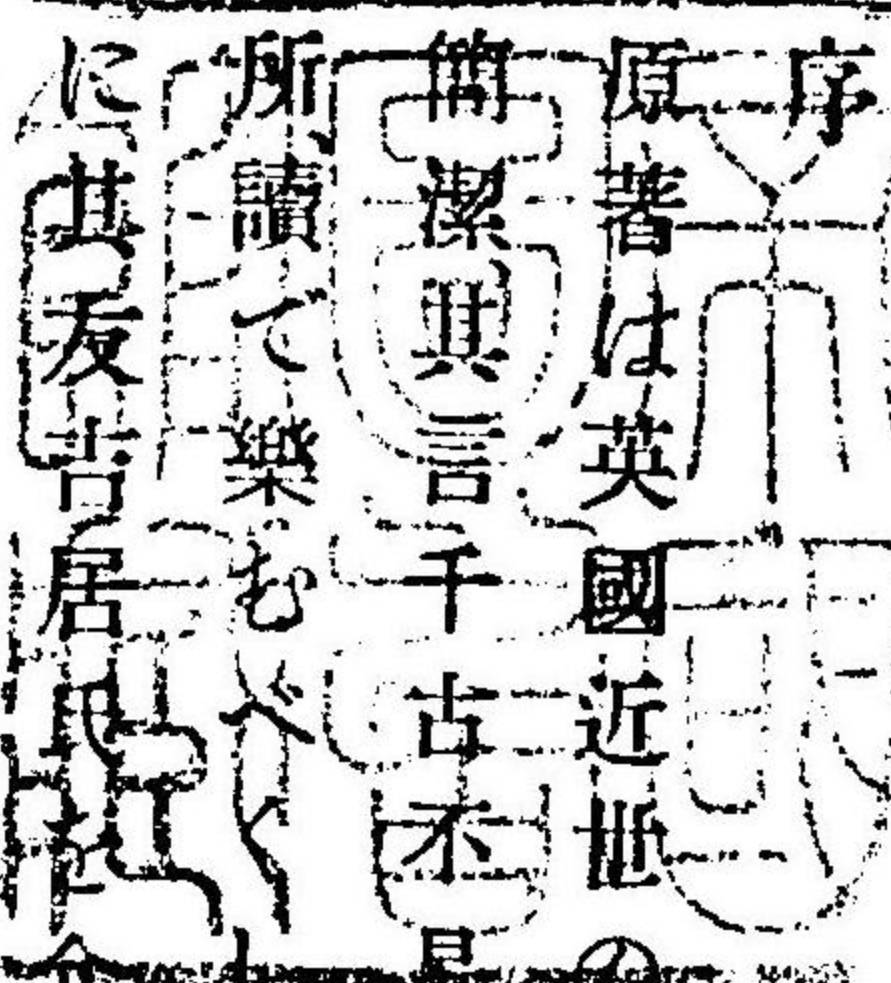 序
原著は英國近世の
簡潔其言千古不
所、讀で樂むべく
に其友吉居